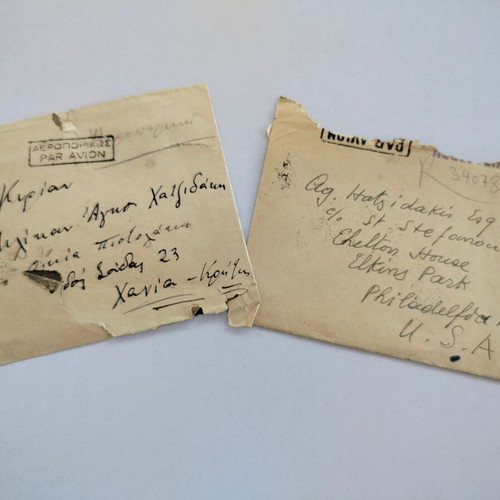 ΑΕΡΟΠΟΡΙΚΩΣ
PAR AVION
Κυρίαν
Χατζιδάκη
Οικία Πιστολάκη
Οδός 23
Χανιά - Κρήτης
PAR AVION
34078
Ag. Hatzidakis Esq
c/o St Stefanou
Ehelton House
Elkins Park
Philadelfia
U.S.A